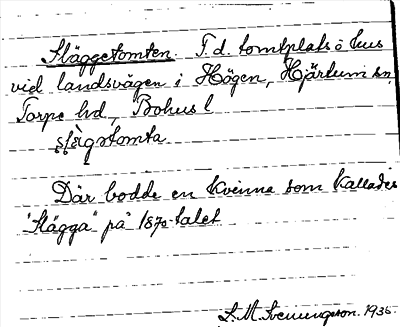 Släggetomten. F.d. tomtplats o hus
vid landsvägen i Högen, Hjärtum sn,
Torpe hd, Bohus l
Där bodde en kvinna som kallades
"Slägga" på 1870 talet
L. M. Svenungsson. 1935.